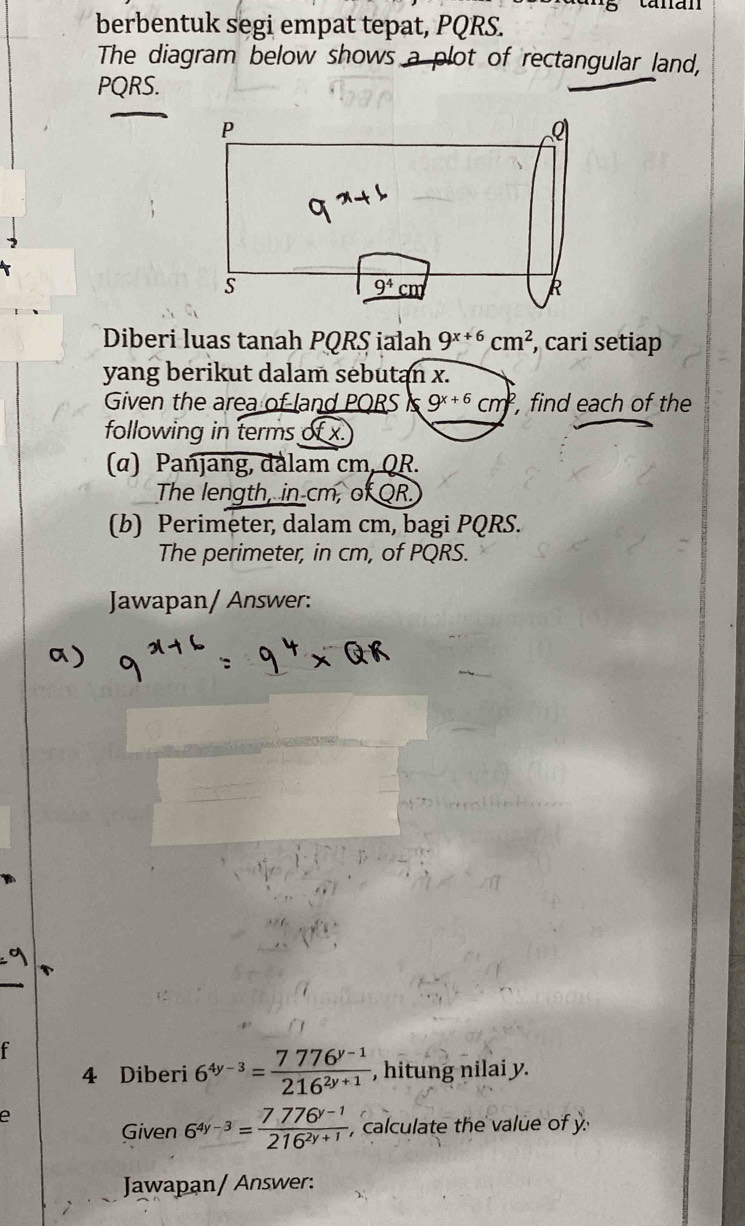 berbentuk segi empat tepat, PQRS.
The diagram below shows a plot of rectangular land,
PQRS.
P
Q
9ˣ⁺⁶
S
9⁴ cm
R
Diberi luas tanah PQRS ialah 9ˣ⁺⁶ cm², cari setiap
yang berikut dalam sebutan x.
Given the area of land PQRS is 9ˣ⁺⁶ cm², find each of the
following in terms of x.
(a) Panjang, dalam cm, QR.
The length, in cm, of QR.
(b) Perimeter, dalam cm, bagi PQRS.
The perimeter, in cm, of PQRS.
Jawapan/ Answer:
a) 9ˣ⁺⁶ = 9⁴ × QR
4 Diberi 6⁴ʸ⁻³ = 7 776ʸ⁻¹ / 216²ʸ⁺¹, hitung nilai y.
Given 6⁴ʸ⁻³ = 7 776ʸ⁻¹ / 216²ʸ⁺¹, calculate the value of y.
Jawapan/ Answer: